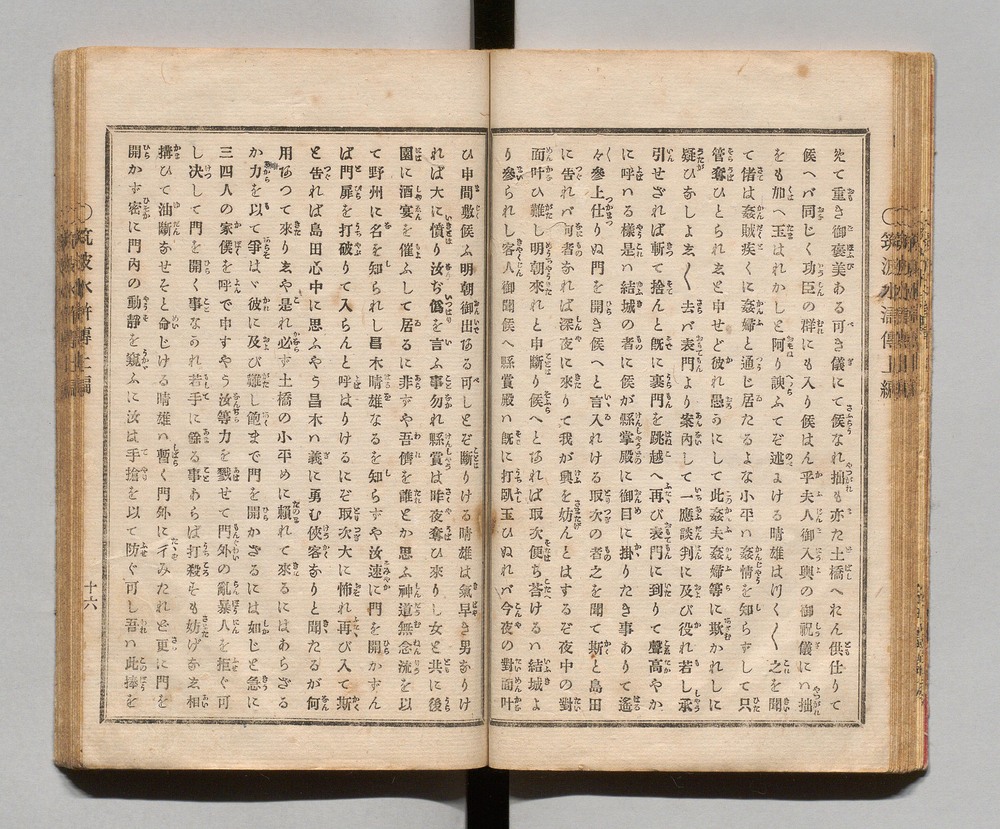 先て重き御褒美ある可き儀にて候なれ拙も亦た土橋へれん供仕りて
候へバ同じく功臣の群にも入り候はん乎夫人御入輿の御祝儀にハ拙
をも加へ玉はれかしと阿り諛ふてぞ述まける晴雄はけく〱之を聞
て偖は姦賊疾くに姦婦と通じ居たるよな小平ハ姦情を知らずして只
管奪ひとられゑと申せど彼れ愚うにして此姦夫姦婦等に欺かれしに
疑ひなしよゑ〱去バ表門より案內して一應談判に及び役れ若し承
引せざれば斬て捨んと既に裏門を跳越へ再び表門に到りて聲高やか
に呼ハる樣是ハ結城の者に候が縣掌殿に御目に掛りたき事ありて遙
々參上仕りぬ門を開き候へと言入れける取次の者之を聞て斯と島田
に吿れバ何者なれば深夜に來りて我が興を妨んとはするぞ夜中の對
面叶ひ難し明朝來れと申斷り候へとあれば取次便ち荅ける ハ結城よ
り參られし客人御聞候へ縣賞殿ハ既に打臥玉ひぬれバ今夜の對面叶
ひ申間敷候ふ明朝御出ある可しとぞ斷りける晴雄は氣早き男なりけ
れば大に憤り汝ぢ僞を言ふ事勿れ縣賞は昨夜奪ひ來りし女と共に後
園に酒宴を催ふして居るに非ずや吾儕を誰とか思ふ神道無念流を以
て野州に名を知られし昌木晴雄なるを知らずや汝速に門を開かずん
ば門扉を打破りて入らんと呼はりけるにぞ取次大に怖れ再び入て斯
と吿れば島田心中に思ふやう昌木ハ義に勇む俠客なりと聞たるが何
用あつて來りゑや是れ必ず土橋の小平めに賴れて來るにはあらざる
か力を以て爭はゞ彼に及び難し飽まで門を開かざるには如じと急に
三四人の家僕を呼で申すやう汝等力を戮せて門外の亂暴人を拒ぐ可
し決して門を開く事なかれ若手に餘る事あらば打殺そも妨げなゑ相
搆ひて油斷なせそと命じける晴雄ハ暫く門外にイみたれど更に門を
開かず密に門內の動靜を窺ふに汝は手搶を以て防ぐ可し吾ハ此捧を
筑波水滸傳上編
十六